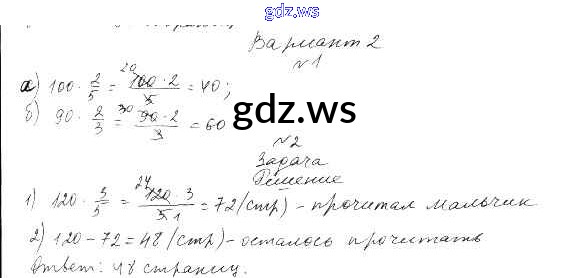 gdz.ws
Вариант 2
№1
а) 100 · 2/5 = 100 · 2/5 = 40;
20
б) 90 · 2/3 = 90 · 2/3 = 60
30
gdz.ws
№2
Задача
Решение
1) 120 · 3/5 = 120 · 3/5 = 72 (стр) - прочитал мальчик
24
1
2) 120 - 72 = 48 (стр) - осталось прочитать
Ответ: 48 страниц.